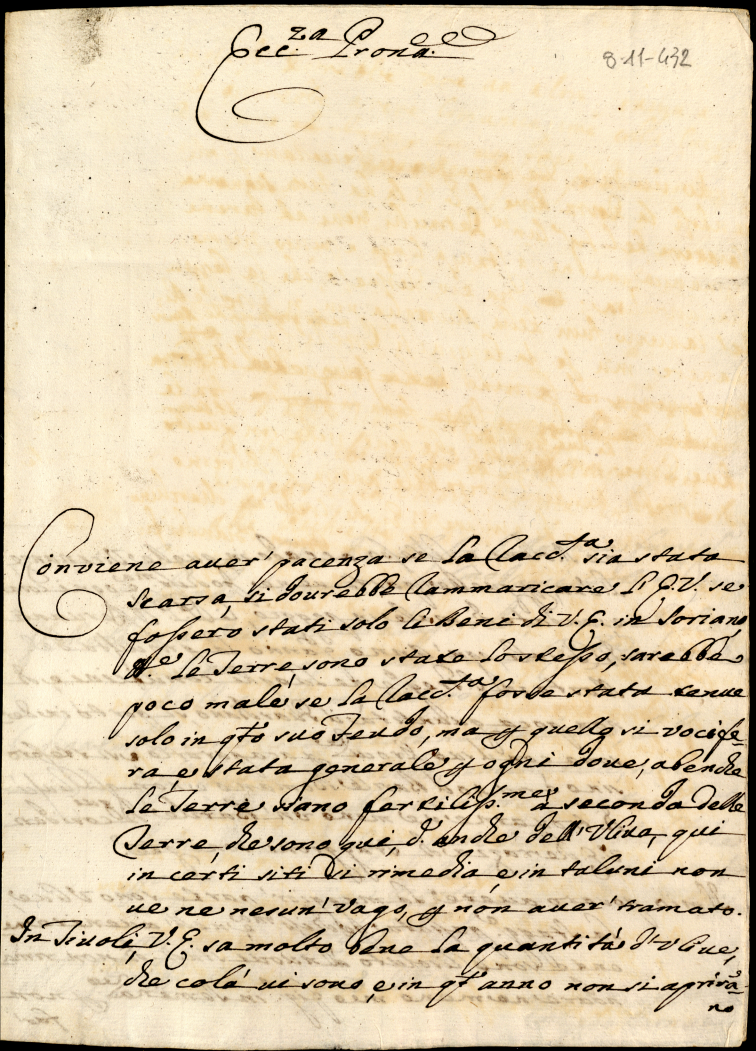 Ecc.za Prona
8-11-432
Conviene aver' pacenza se la Racc.ta sia stata
scarsa, si dovrebbe rammaricare l'E.V. se
fossero stati solo li Beni di V.E. in Soriano
le Terre, sono state lo stesso, sarebbe
poco male, se la Racc.ta fosse stata tenue
solo in q.to suo Feudo, ma p quello si vocife-
ra, e stata generale p ogni dove, abenche
le Terre siano fertiliss.me a seconda delle
Terre, che sono qui, d. anche dell'Uliva, qui
in certi siti si rimedia, e in taluni non
ve ne nesun' vago, p non aver' tramato.
In Tivoli, V.E. sa molto bene la quantità d'Ulive,
che colà vi sono, e in q.to anno non si aprira-
no